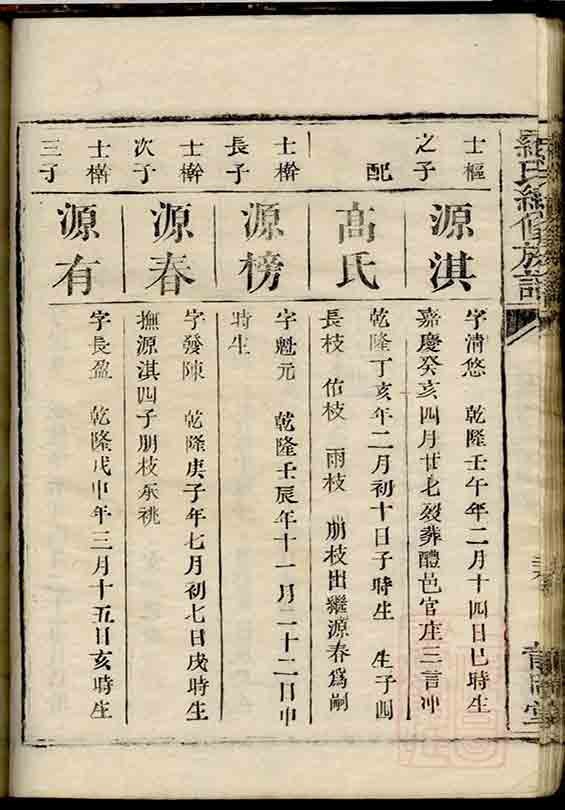 羅氏續修族譜
士樞
之子
源淇
字清悠 乾隆壬午年二月十四日巳時生
嘉慶癸亥四月廿七歿葬醴邑官庄三言冲
配
高氏
乾隆丁亥年二月初十日子時生 生子四
長枝 佑枝 雨枝 朋枝出繼源春爲嗣
士檊
長子
源榜
字魁元 乾隆壬辰年十一月二十二日申
時生
士檊
次子
源春
字發陳 乾隆庚子年七月初七日戌時生
撫源淇四子朋枝承祧
士檊
三子
源有
字長盈 乾隆戊申年三月十五日亥時生